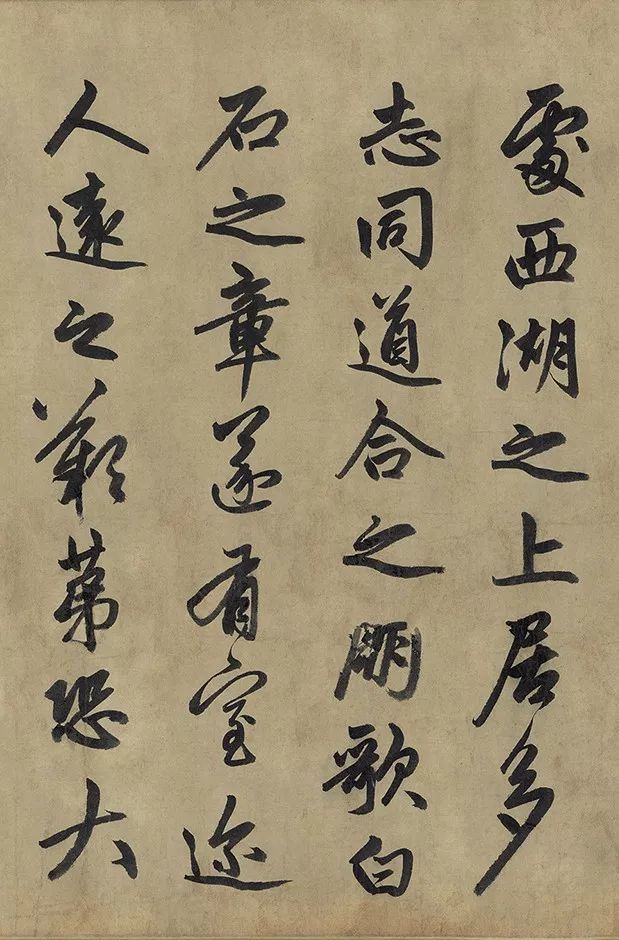 處西湖之上居多
志同道合之朋歌白
石之章遂有室迩
人遠之歎第恐大